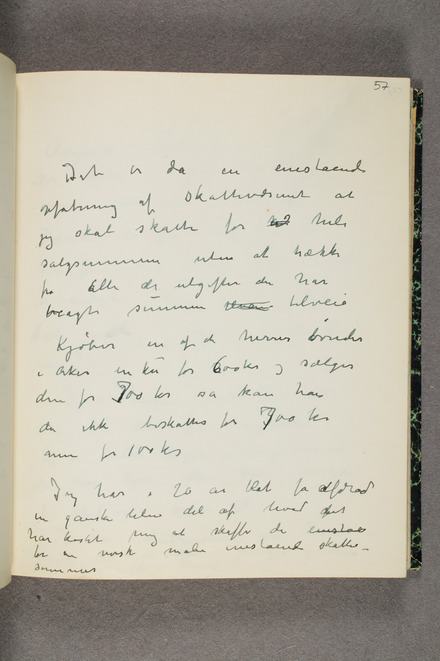 57
Det er da en enestaaende
opfatning af skattevæsenet at
jeg skal skatte for hele
salgsummen uten at trække
fra alle de utgifter der har
bragt summen tilveie
Kjøber en af de herrer bønder
i Aker en ku for 600 kr og sælger
den for 700 kr så kan han
da ikke beskattes for 700 kr
men for 100 kr
Jeg har i 20 år blot fåt afdrad
en ganske liten del af hvad det
har kostet mig at skaffe de
for en norsk maler enestaaende skatte-
summer